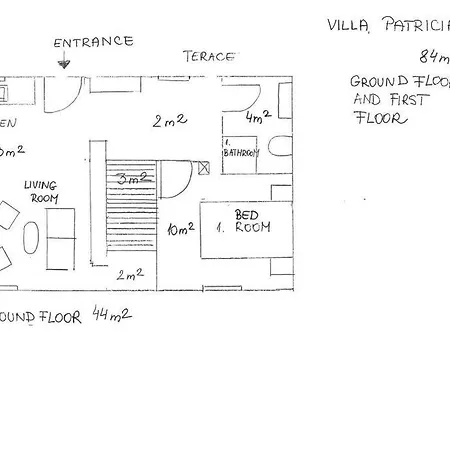 VILLA, PATRICIA
84m
GROUND FLOO
AND FIRST
FLOOR
ENTRANCE
TERACE
EN
2 m²
4 m²
1.
BATHROOM
3 m²
LIVING
ROOM
10 m²
BED
1. ROOM
2 m²
OUND FLOOR 44 m²